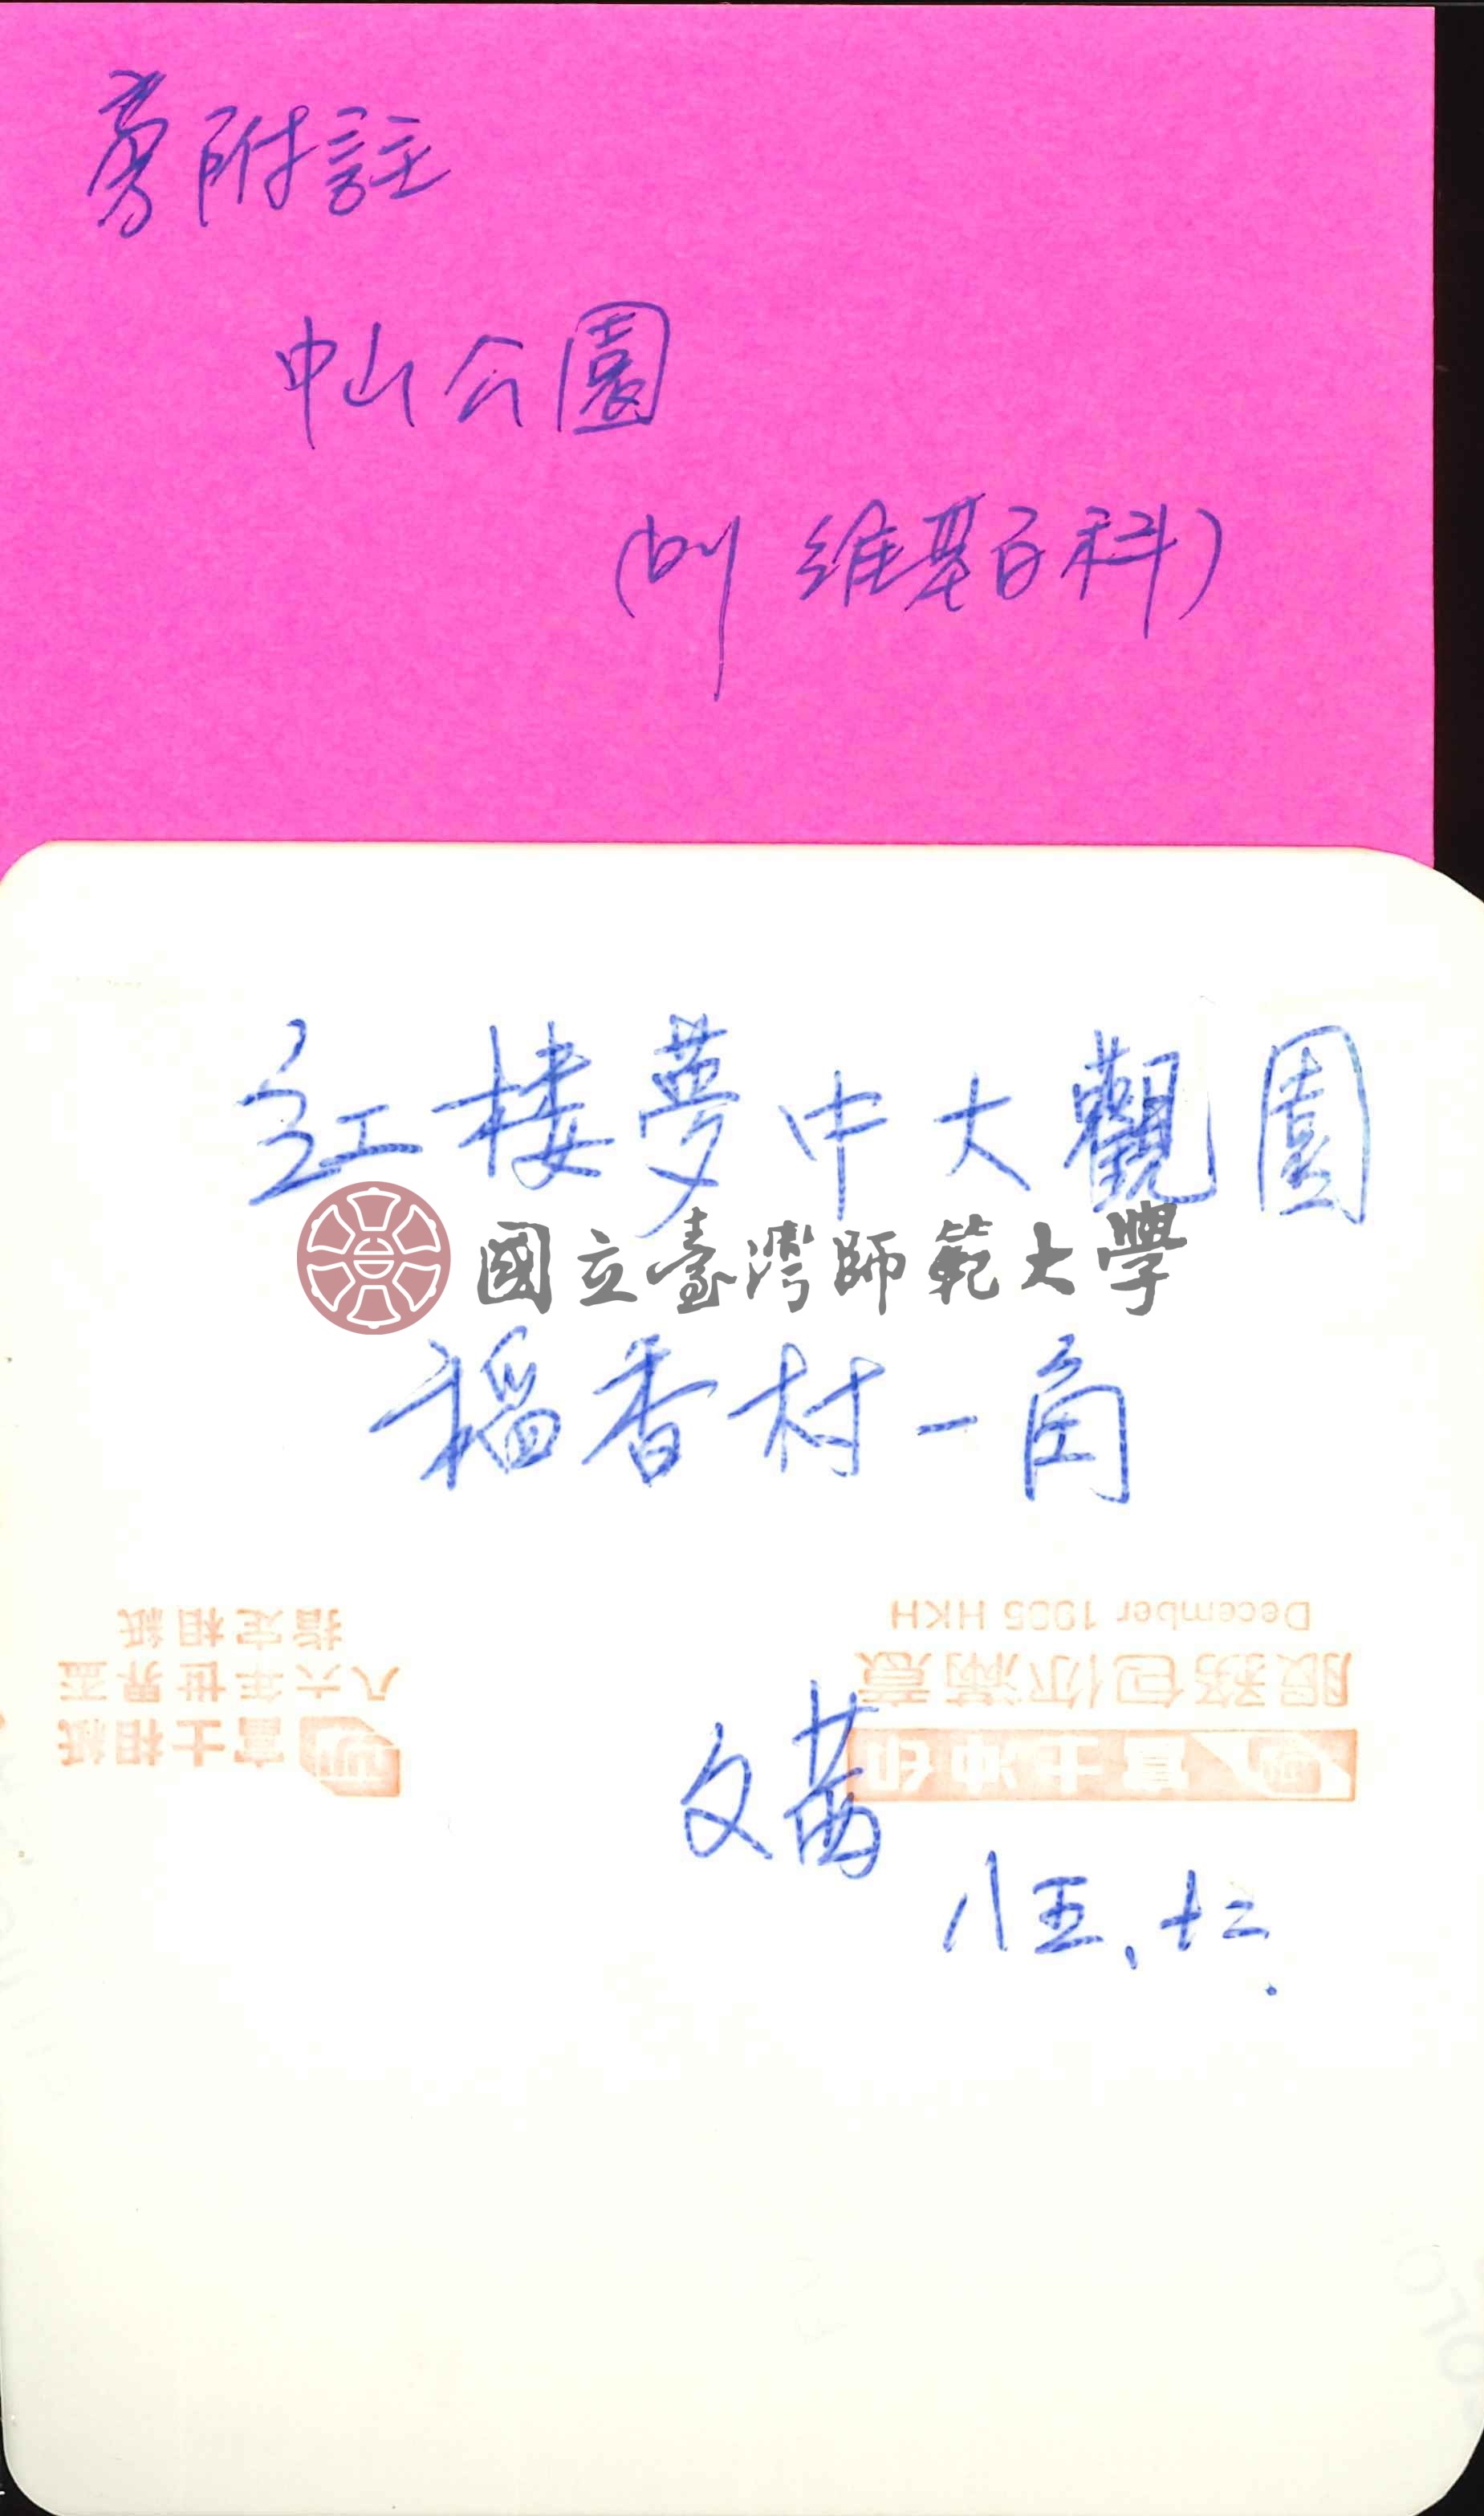 附註
中山公園
維基百科)
紅楼夢中大觀園
國立臺灣師範大學
稻香村一角
指定相紙
八六年世界盃
富士相紙
December 1985 HKH
服務包你滿意
富士冲印
文茜
八五、十二.